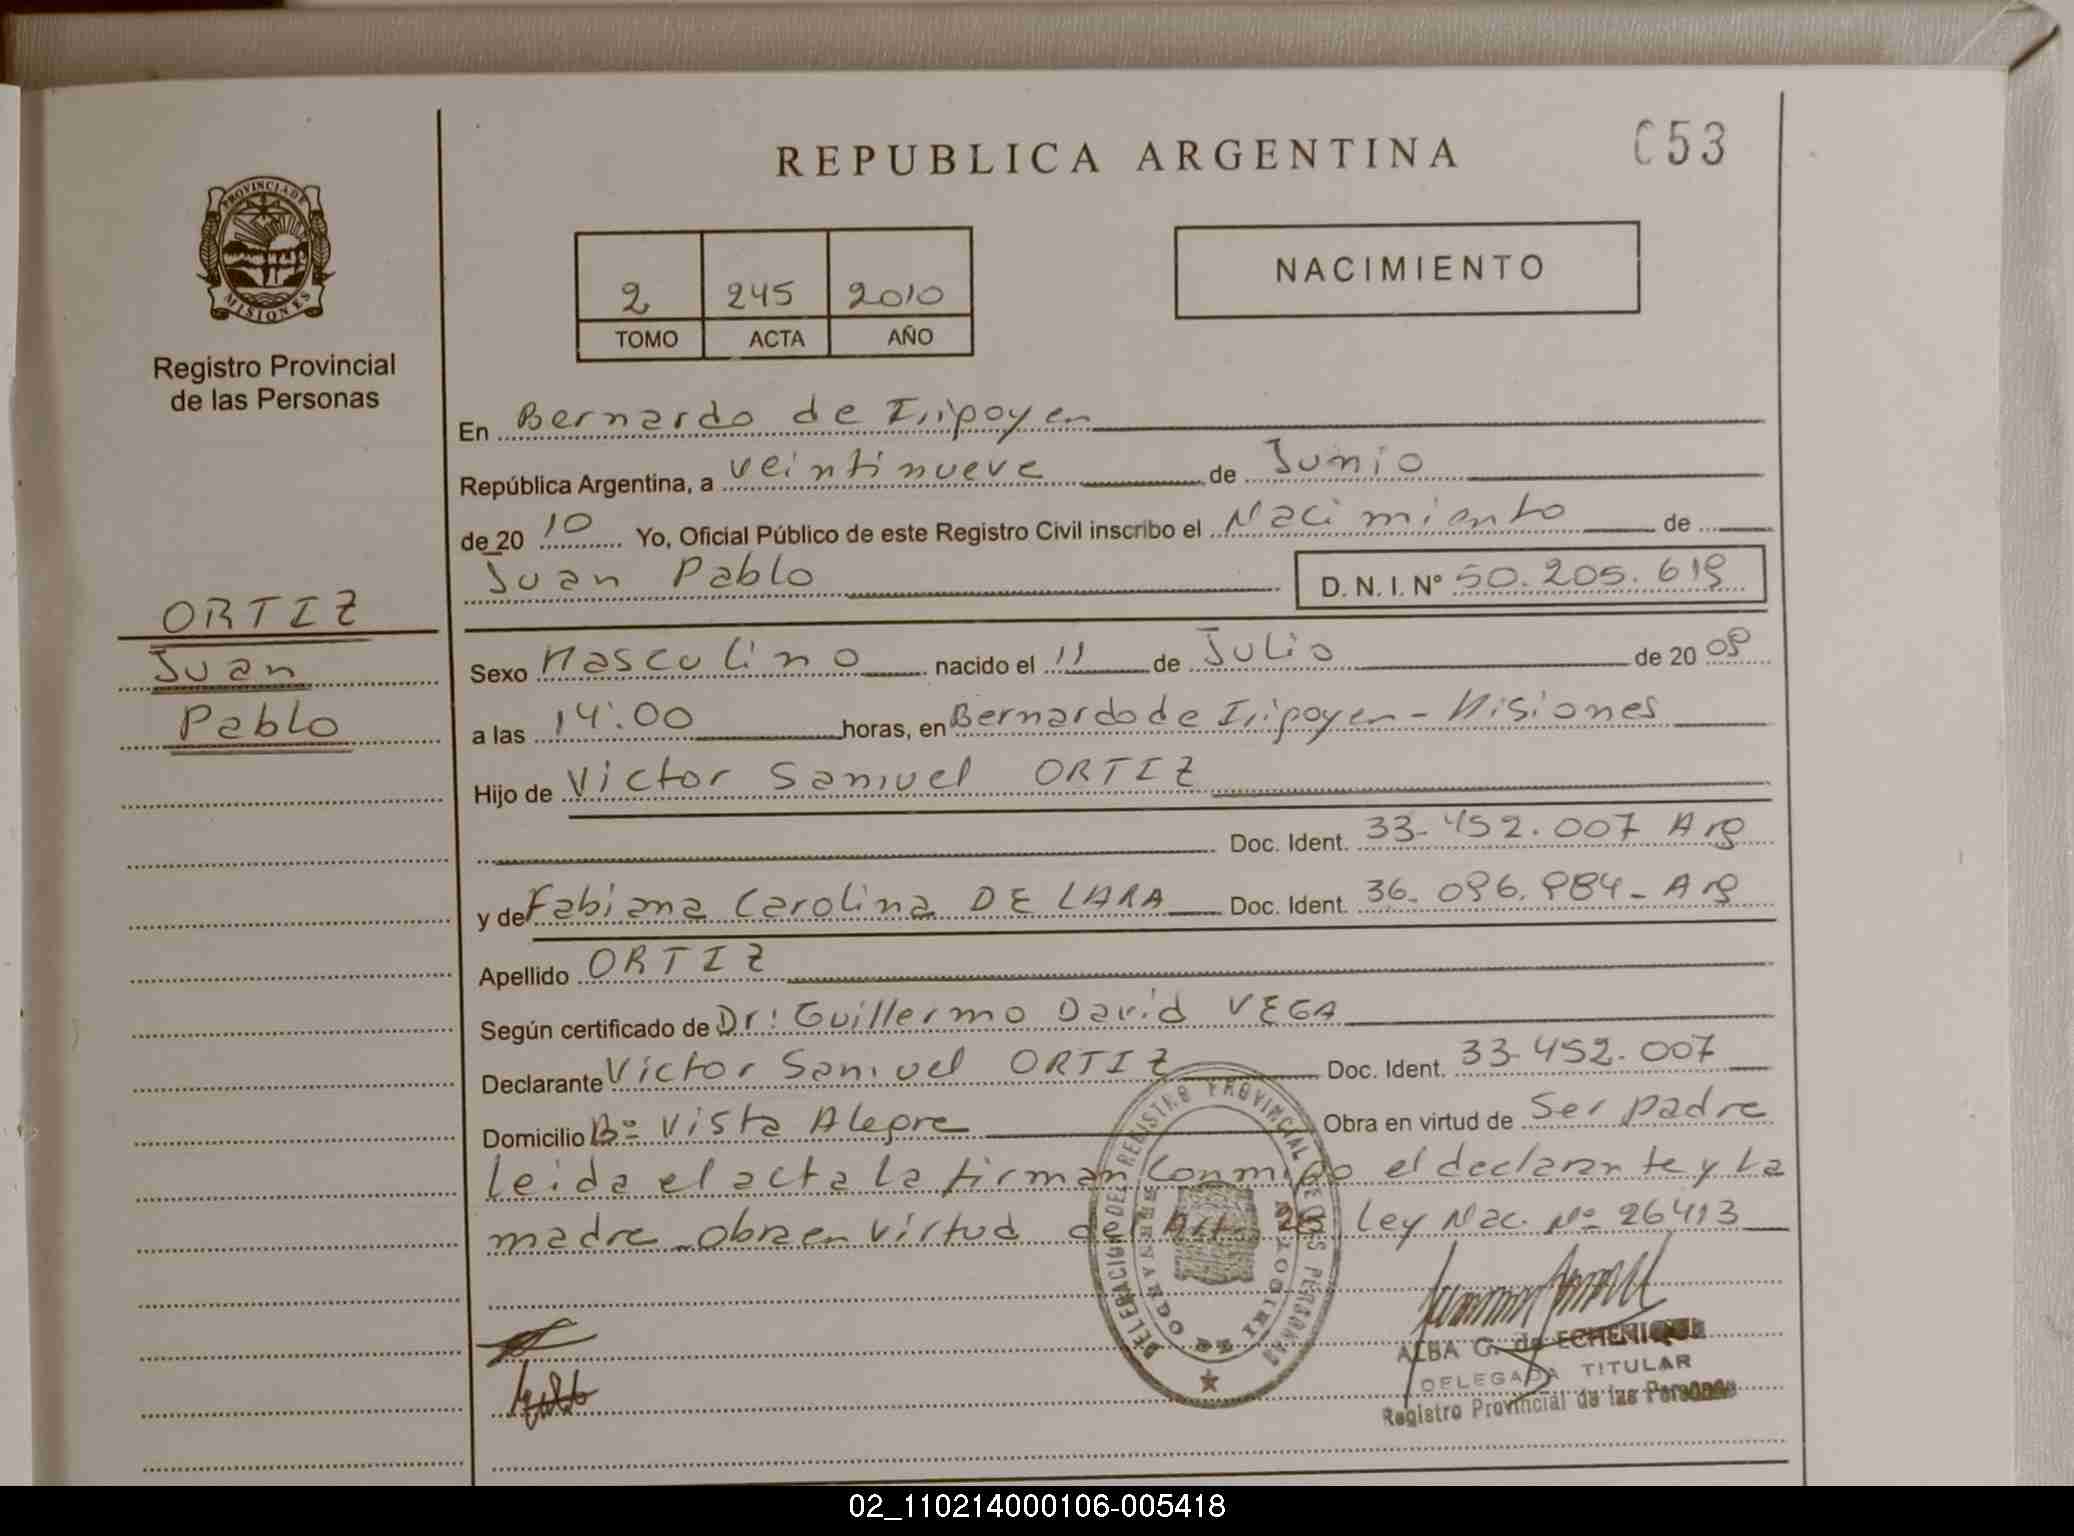 REPUBLICA ARGENTINA
C53
PROVINCIA DE
MISIONES
Registro Provincial
de las Personas
2 245 2010
TOMO ACTA AÑO
NACIMIENTO
En Bernardo de Irigoyen
República Argentina, a veintinueve de Junio
de 2010 Yo, Oficial Público de este Registro Civil inscribo el Nacimiento de
Juan Pablo D. N. I. N° 50.205.619
ORTIZ
Juan
Pablo
Sexo Masculino nacido el 11 de Julio de 2009
a las 14:00 horas, en Bernardo de Irigoyen - Misiones
Hijo de Victor Samuel ORTIZ
Doc. Ident. 33-452.007 Arg
y de Fabiana Carolina DE LARA Doc. Ident. 36. 096. 984 - Arg
Apellido ORTIZ
Según certificado de Dr: Guillermo David VEGA
Declarante Victor Samuel ORTIZ Doc. Ident. 33-452.007
Domicilio Bº Vista Alegre Obra en virtud de Ser padre
Leida el acta la firman conmigo el declarante y la
madre obra en virtud del Art. Ley Nac. Nº 26413
DELEGACION DEL REGISTRO PROVINCIAL DE LAS PERSONAS
BERNARDO DE IRIGOYEN
ALBA G. de ECHENIQUE
DELEGADA TITULAR
Registro Provincial de las Personas
02_110214000106-005418